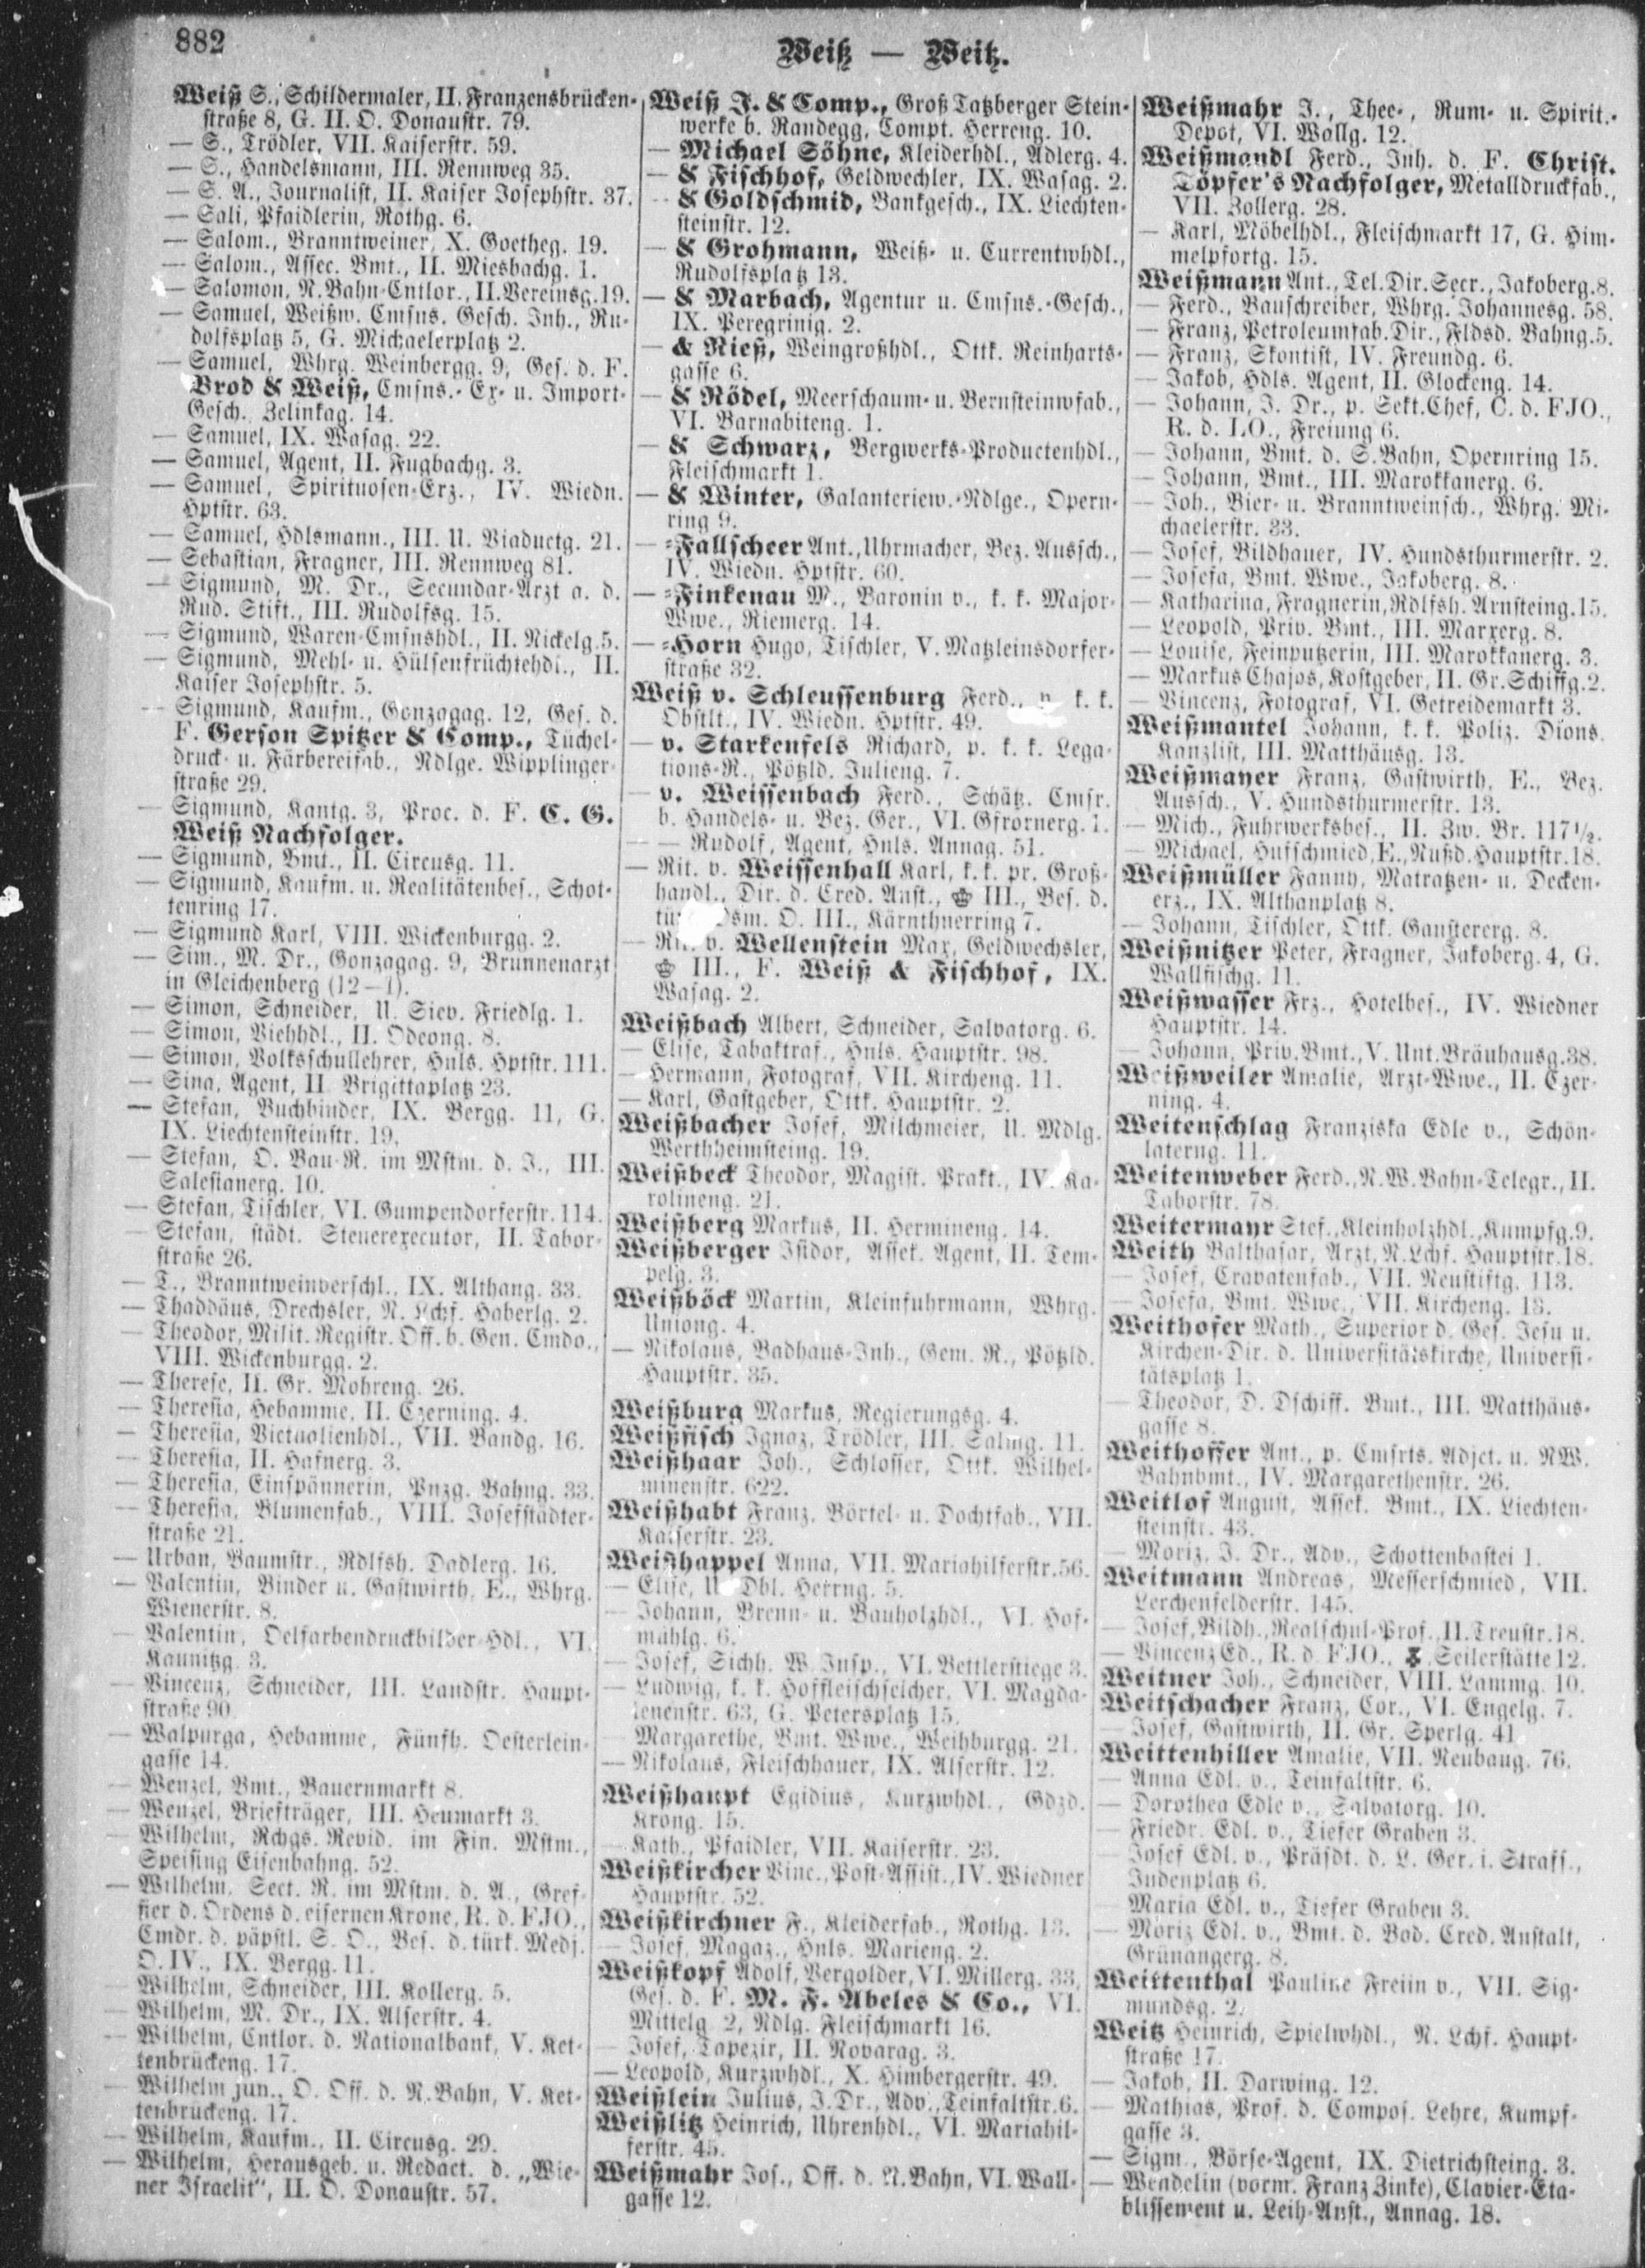 882
Weiß — Weitz.
Weiß S., Schildermaler, II. Franzensbrücken-
straße 8, G. II. O. Donaustr. 79.
— S., Trödler, VII. Kaiserstr. 59.
— S., Handelsmann, III. Rennweg 35.
— S. A., Journalist, II. Kaiser Josephstr. 37.
— Sali, Pfaidlerin, Rothg. 6.
— Salom., Branntweiner, X. Goetheg. 19.
— Salom., Assec. Bmt., II. Miesbachg. 1.
— Salomon, N.Bahn-Cntlor., II.Vereinsg.19.
— Samuel, Weißw. Cmsns. Gesch. Inh., Ru-
dolfsplatz 5, G. Michaelerplatz 2.
— Samuel, Whrg. Weinbergg. 9, Ges. d. F.
Brod & Weiß, Cmsns.- Ex- u. Import-
Gesch. Zelinkag. 14.
— Samuel, IX. Wasag. 22.
— Samuel, Agent, II. Fugbachg. 3.
— Samuel, Spirituosen-Erz., IV. Wiedn.
Hptstr. 63.
— Samuel, Hdlsmann., III. U. Viaductg. 21.
— Sebastian, Fragner, III. Rennweg 81.
— Sigmund, M. Dr., Secundar-Arzt a. d.
Rud. Stift., III. Rudolfsg. 15.
— Sigmund, Waren-Cmsnshdl., II. Nickelg.5.
— Sigmund, Mehl- u. Hülsenfrüchtehdl., II.
Kaiser Josephstr. 5.
— Sigmund, Kaufm., Gonzagag. 12, Ges. d.
F. Gerson Spitzer & Comp., Tüchel-
druck- u. Färbereifab., Ndlge. Wipplinger-
straße 29.
— Sigmund, Kantg. 3, Proc. d. F. C. G.
Weiß Nachfolger.
— Sigmund, Bmt., II. Circusg. 11.
— Sigmund, Kaufm. u. Realitätenbes., Schot-
tenring 17.
— Sigmund Karl, VIII. Wickenburgg. 2.
— Sim., M. Dr., Gonzagag. 9, Brunnenarzt
in Gleichenberg (12—1).
— Simon, Schneider, U. Siev. Friedlg. 1.
— Simon, Viehhdl., II. Odeong. 8.
— Simon, Volksschullehrer, Hnls. Hptstr. 111.
— Sina, Agent, II. Brigittaplatz 23.
— Stefan, Buchbinder, IX. Bergg. 11, G.
IX. Liechtensteinstr. 19.
— Stefan, O. Bau-R. im Mstm. d. J., III.
Salesianerg. 10.
— Stefan, Tischler, VI. Gumpendorferstr. 114.
— Stefan, städt. Steuerexecutor, II. Tabor-
straße 26.
— T., Branntweinverschl., IX. Althang. 33.
— Thaddäus, Drechsler, N. Lchf. Haberlg. 2.
— Theodor, Milit. Registr. Off. b. Gen. Cmdo.,
VIII. Wickenburgg. 2.
— Therese, II. Gr. Mohreng. 26.
— Theresia, Hebamme, II. Czerning. 4.
— Theresia, Victualienhdl., VII. Bandg. 16.
— Theresia, II. Hafnerg. 3.
— Theresia, Einspännerin, Pnzg. Bahng. 33.
— Theresia, Blumenfab., VIII. Josefstädter-
straße 21.
— Urban, Baumstr., Rdlfsh. Dadlerg. 16.
— Valentin, Binder u. Gastwirth, E., Whrg.
Wienerstr. 8.
— Valentin, Oelfarbendruckbilder-Hdl., VI.
Kaunitzg. 3.
— Vincenz, Schneider, III. Landstr. Haupt-
straße 90.
— Walpurga, Hebamme, Fünfh. Oesterlein-
gasse 14.
— Wenzel, Bmt., Bauernmarkt 8.
— Wenzel, Briefträger, III. Heumarkt 3.
— Wilhelm, Rchgs. Revid. im Fin. Mstm.,
Speising Eisenbahng. 52.
— Wilhelm, Sect. R. im Mstm. d. A., Gref-
fier d. Ordens d. eisernen Krone, R. d. FJO.,
Cmdr. d. päpstl. S. O., Bes. d. türk. Medj.
O. IV., IX. Bergg. 11.
— Wilhelm, Schneider, III. Kollerg. 5.
— Wilhelm, M. Dr., IX. Alserstr. 4.
— Wilhelm, Cntlor. d. Nationalbank, V. Ket-
tenbrückeng. 17.
— Wilhelm jun., O. Off. d. N.Bahn, V. Ket-
tenbrückeng. 17.
— Wilhelm, Kaufm., II. Circusg. 29.
— Wilhelm, Herausgeb. u. Redact. d. „Wie-
ner Israelit“, II. O. Donaustr. 57.
Weiß J. & Comp., Groß Tatzberger Stein-
werke b. Randegg, Compt. Herreng. 10.
— Michael Söhne, Kleiderhdl., Adlerg. 4.
— & Fischhof, Geldwechler, IX. Wasag. 2.
— & Goldschmid, Bankgesch., IX. Liechten-
steinstr. 12.
— & Grohmann, Weiß- u. Currentwhdl.,
Rudolfsplatz 13.
— & Marbach, Agentur u. Cmsns.-Gesch.,
IX. Peregrinig. 2.
— & Rieß, Weingroßhdl., Ottk. Reinharts-
gasse 6.
— & Rödel, Meerschaum- u. Bernsteinwfab.,
VI. Barnabiteng. 1.
— & Schwarz, Bergwerks-Productenhdl.,
Fleischmarkt 1.
— & Winter, Galanteriew.-Ndlge., Opern-
ring 9.
— -Fallscheer Ant., Uhrmacher, Bez. Aussch.,
IV. Wiedn. Hptstr. 60.
— -Finkenau M., Baronin v., k. k. Major-
Wwe., Riemerg. 14.
— -Horn Hugo, Tischler, V. Matzleinsdorfer-
straße 32.
Weiß v. Schleussenburg Ferd., k. k.
Obstlt., IV. Wiedn. Hptstr. 49.
— v. Starkenfels Richard, p. k. k. Lega-
tions-R., Pötzld. Julieng. 7.
— v. Weissenbach Ferd., Schätz. Cmsr.
b. Handels- u. Bez. Ger., VI. Gfrornerg. 1.
— — Rudolf, Agent, Hnls. Annag. 51.
— Rit. v. Weissenhall Karl, k. k. pr. Groß-
handl., Dir. d. Cred. Anst., ♔ III., Bes. d.
Osm. O. III., Kärnthnerring 7.
— Rit. v. Wellenstein Max, Geldwechsler,
♔ III., F. Weiß & Fischhof, IX.
Wasag. 2.
Weißbach Albert, Schneider, Salvatorg. 6.
— Elise, Tabaktraf., Hnls. Hauptstr. 98.
— Hermann, Fotograf, VII. Kircheng. 11.
— Karl, Gastgeber, Ottk. Hauptstr. 2.
Weißbacher Josef, Milchmeier, U. Mdlg.
Werthheimsteing. 19.
Weißbeck Theodor, Magist. Prakt., IV. Ka-
rolineng. 21.
Weißberg Markus, II. Hermineng. 14.
Weißberger Isidor, Assek. Agent, II. Tem-
pelg. 3.
Weißböck Martin, Kleinfuhrmann, Whrg.
Uniong. 4.
— Nikolaus, Badhaus-Inh., Gem. R., Pötzld.
Hauptstr. 35.
Weißburg Markus, Regierungsg. 4.
Weißfisch Ignaz, Trödler, III. Salmg. 11.
Weißhaar Joh., Schlosser, Ottk. Wilhel-
minenstr. 622.
Weißhabt Franz, Börtel- u. Dochtfab., VII.
Kaiserstr. 23.
Weißhappel Anna, VII. Mariahilferstr.56.
— Elise, U. Dbl. Herrng. 5.
— Johann, Brenn- u. Bauholzhdl., VI. Hof-
mühlg. 6.
— Josef, Sichh. W. Insp., VI. Bettlerstiege 3.
— Ludwig, k. k. Hoffleischselcher, VI. Magda-
lenenstr. 63, G. Petersplatz 15.
— Margarethe, Bmt. Wwe., Weihburgg. 21.
— Nikolaus, Fleischhauer, IX. Alserstr. 12.
Weißhaupt Egidius, Kurzwhdl., Gdzd.
Krong. 15.
— Kath., Pfaidler, VII. Kaiserstr. 23.
Weißkircher Vinc., Post-Assist., IV. Wiedner
Hauptstr. 52.
Weißkirchner F., Kleiderfab., Rothg. 13.
— Josef, Magaz., Hnls. Marieng. 2.
Weißkopf Adolf, Vergolder, VI. Millerg. 33,
Ges. d. F. M. F. Abeles & Co., VI.
Mittelg. 2, Ndlg. Fleischmarkt 16.
— Josef, Tapezir, II. Novarag. 3.
— Leopold, Kurzwhdl., X. Himbergerstr. 49.
Weißlein Julius, J. Dr., Adv., Teinfaltstr.6.
Weißlitz Heinrich, Uhrenhdl., VI. Mariahil-
ferstr. 45.
Weißmahr Jos., Off. d. N.Bahn, VI. Wall-
gasse 12.
Weißmahr J., Thee-, Rum- u. Spirit.-
Depot, VI. Wallg. 12.
Weißmandl Ferd., Inh. d. F. Christ.
Töpfer's Nachfolger, Metalldruckfab.,
VII. Zollerg. 28.
— Karl, Möbelhdl., Fleischmarkt 17, G. Him-
melpfortg. 15.
Weißmann Ant., Tel.Dir.Secr., Jakoberg.8.
— Ferd., Bauschreiber, Whrg. Johannesg. 58.
— Franz, Petroleumfab.Dir., Fldsd. Bahng.5.
— Franz, Skontist, IV. Freundg. 6.
— Jakob, Hdls. Agent, II. Glockeng. 14.
— Johann, J. Dr., p. Sekt.Chef, C. d. FJO.,
R. d. LO., Freiung 6.
— Johann, Bmt. d. S.Bahn, Opernring 15.
— Johann, Bmt., III. Marokkanerg. 6.
— Joh., Bier- u. Branntweinsch., Whrg. Mi-
chaelerstr. 33.
— Josef, Bildhauer, IV. Hundsthurmerstr. 2.
— Josefa, Bmt. Wwe., Jakoberg. 8.
— Katharina, Fragnerin, Rdlfsh. Arnsteing.15.
— Leopold, Priv. Bmt., III. Marxerg. 8.
— Louise, Feinputzerin, III. Marokkanerg. 3.
— Markus Chajos, Kostgeber, II. Gr.Schiffg.2.
— Vincenz, Fotograf, VI. Getreidemarkt 3.
Weißmantel Johann, k. k. Poliz. Dions.
Kanzlist, III. Matthäusg. 13.
Weißmayer Franz, Gastwirth, E., Bez.
Aussch., V. Hundsthurmerstr. 13.
— Mich., Fuhrwerksbes., II. Zw. Br. 117½.
— Michael, Hufschmied, E., Nußd. Hauptstr.18.
Weißmüller Fanny, Matratzen- u. Decken-
erz., IX. Althanplatz 8.
— Johann, Tischler, Ottk. Ganstererg. 8.
Weißnitzer Peter, Fragner, Jakoberg. 4, G.
Wallfischg. 11.
Weißwasser Frz., Hotelbes., IV. Wiedner
Hauptstr. 14.
— Johann, Priv.Bmt., V. Unt.Bräuhausg.38.
Weißweiler Amalie, Arzt-Wwe., II. Czer-
ning. 4.
Weitenschlag Franziska Edle v., Schön-
laterng. 11.
Weitenweber Ferd., N.W.Bahn-Telegr., II.
Taborstr. 78.
Weitermayr Stef., Kleinholzhdl., Kumpfg.9.
Weith Balthasar, Arzt, N.Lchf. Hauptstr.18.
— Josef, Cravatenfab., VII. Neustiftg. 113.
— Josefa, Bmt. Wwe., VII. Kircheng. 13.
Weithofer Math., Superior d. Ges. Jesu u.
Kirchen-Dir. d. Universitätskirche, Universi-
tätsplatz 1.
— Theodor, D. Dschiff. Bmt., III. Matthäus-
gasse 8.
Weithoffer Ant., p. Cmsrts. Adjct. u. NW.
Bahnbmt., IV. Margarethenstr. 26.
Weitlof August, Assek. Bmt., IX. Liechten-
steinstr. 43.
— Moriz, J. Dr., Adv., Schottenbastei 1.
Weitmann Andreas, Messerschmied, VII.
Lerchenfelderstr. 145.
— Josef, Bildh., Realschul-Prof., II. Treustr.18.
— Vincenz Ed., R. d. FJO., Seilerstätte 12.
Weitner Joh., Schneider, VIII. Lammg. 10.
Weitschacher Franz, Cor., VI. Engelg. 7.
— Josef, Gastwirth, II. Gr. Sperlg. 41.
Weittenhiller Amalie, VII. Neubaug. 76.
— Anna Edl. v., Teinfaltstr. 6.
— Dorothea Edle v., Salvatorg. 10.
— Friedr. Edl. v., Tiefer Graben 3.
— Josef Edl. v., Präsdt. d. L. Ger. i. Strafs.,
Judenplatz 6.
— Maria Edl. v., Tiefer Graben 3.
— Moriz Edl. v., Bmt. d. Bod. Cred. Anstalt,
Grünangerg. 8.
Weittenthal Pauline Freiin v., VII. Sig-
mundsg. 2.
Weitz Heinrich, Spielwhdl., N. Lchf. Haupt-
straße 17.
— Jakob, II. Darwing. 12.
— Mathias, Prof. d. Compos. Lehre, Kumpf-
gasse 3.
— Sigm., Börse-Agent, IX. Dietrichsteing. 3.
— Wendelin (vorm. Franz Zinke), Clavier-Eta-
blissement u. Leih-Anst., Annag. 18.